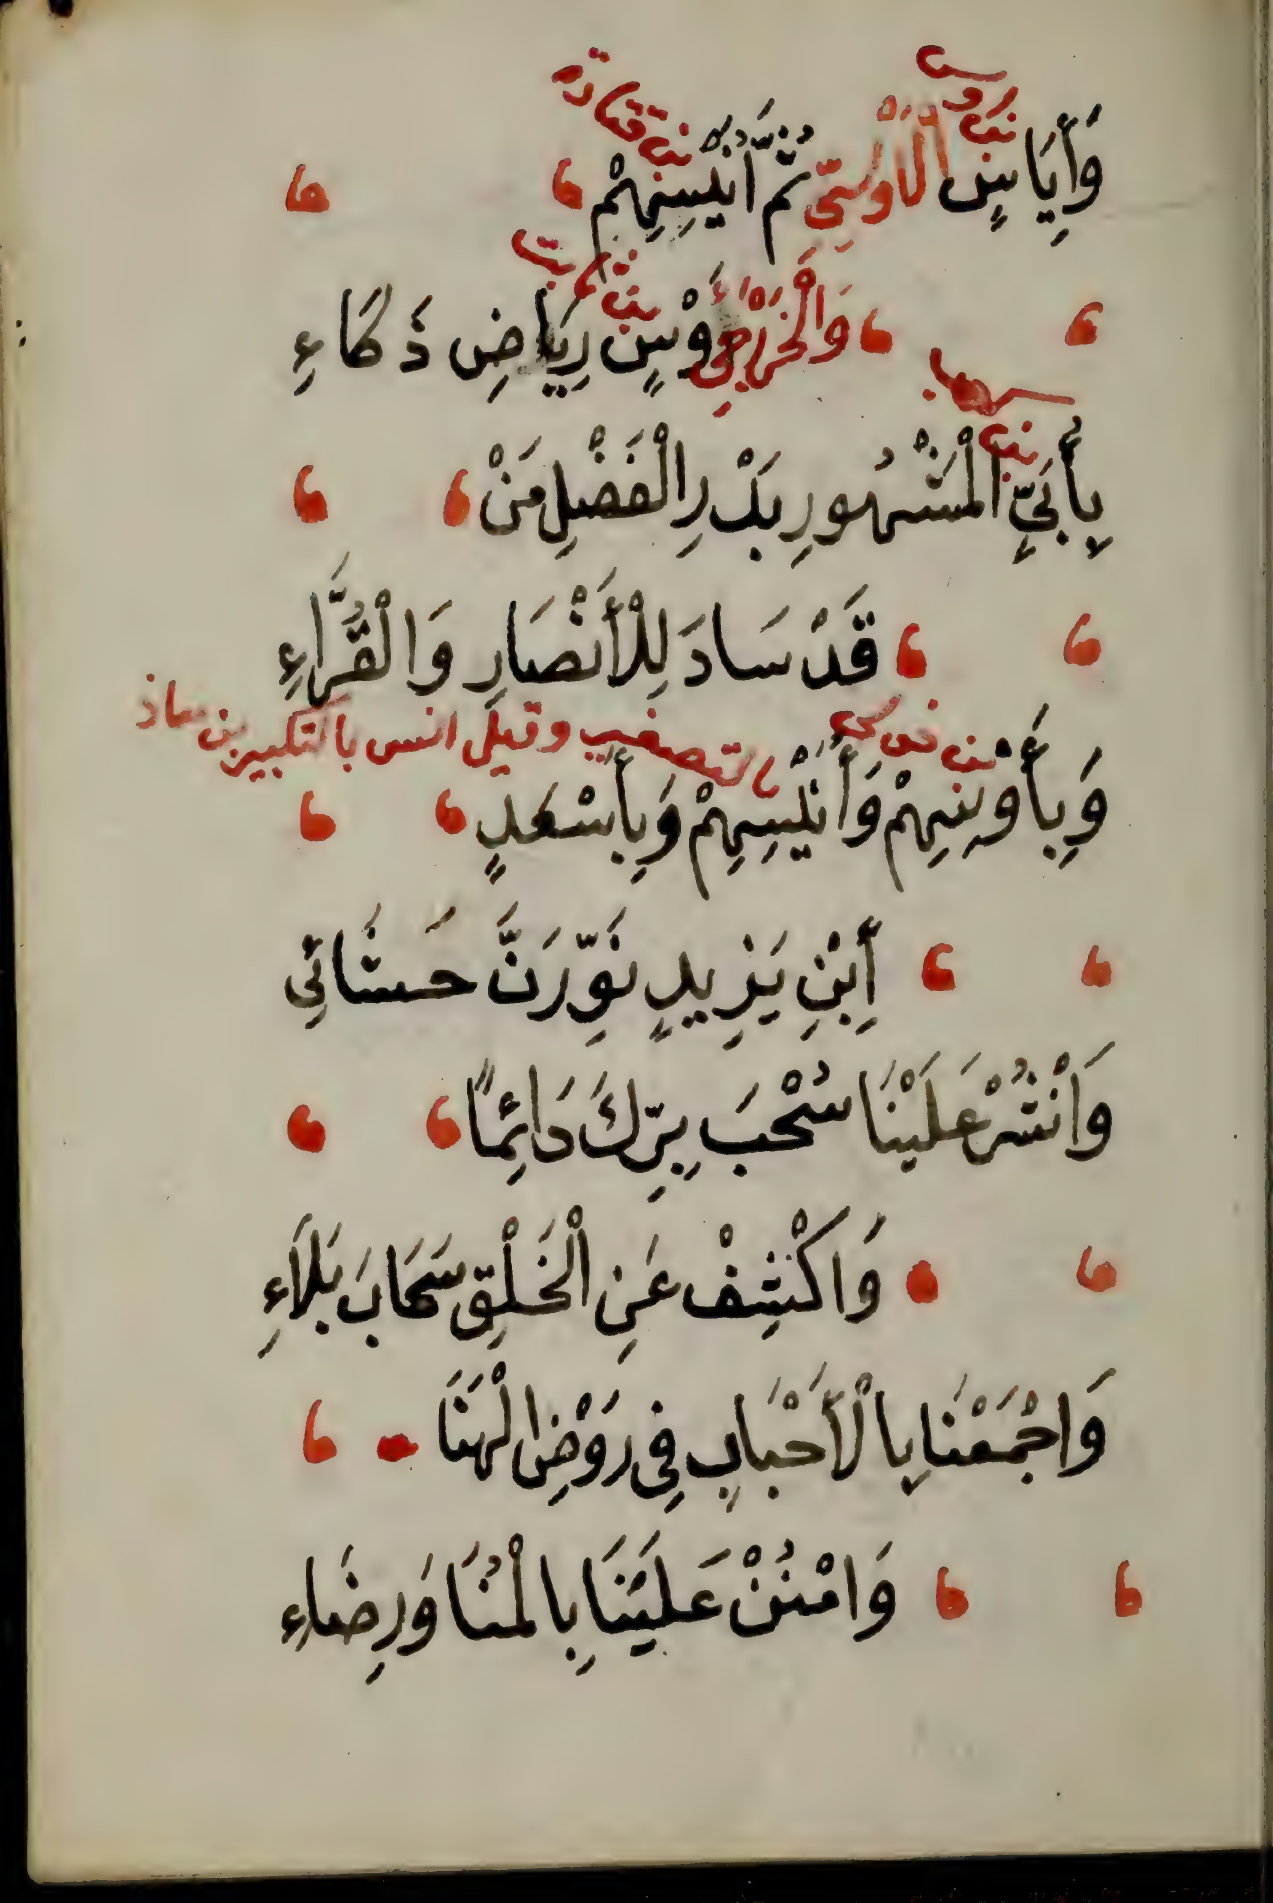 بن اوس
بن قتادة
وَأَيَاسٍ الْأَوْسِيِّ ثُمَّ أُنَيْسِهِمْ
بن ثابت
وَالْخَزْرَجِيْ أَوْسٍ رِيَاضِ ذَكَاءِ
بن كعب
بِأُبَيٍّ الْمَشْهُورِ بَدْرِ الْفَضْلِ مَنْ
قَدْ سَادَ لِلْأَنْصَارِ وَالْقُرَّاءِ
بن خولي
بالتصغير وقيل انس بالتكبير بن معاذ
وَبِأَوْسِهِمْ وَأُنَيْسِهِمْ وَبِأَسْعَدٍ
إِبْنِ يَزِيدٍ نَوِّرَنَّ حَشَائِي
وَانْشُرْ عَلَيْنَا سُحْبَ بِرِّكَ دَائِمًا
وَاكْشِفْ عَنِ الْخَلْقِ سَحَابَ بَلَاءِ
وَاجْمَعْنَا بِالْأَحْبَابِ فِي رَوْضِ الْهَنَا
وَامْنُنْ عَلَيْنَا بِالْمُنَا وَرِضَاءِ